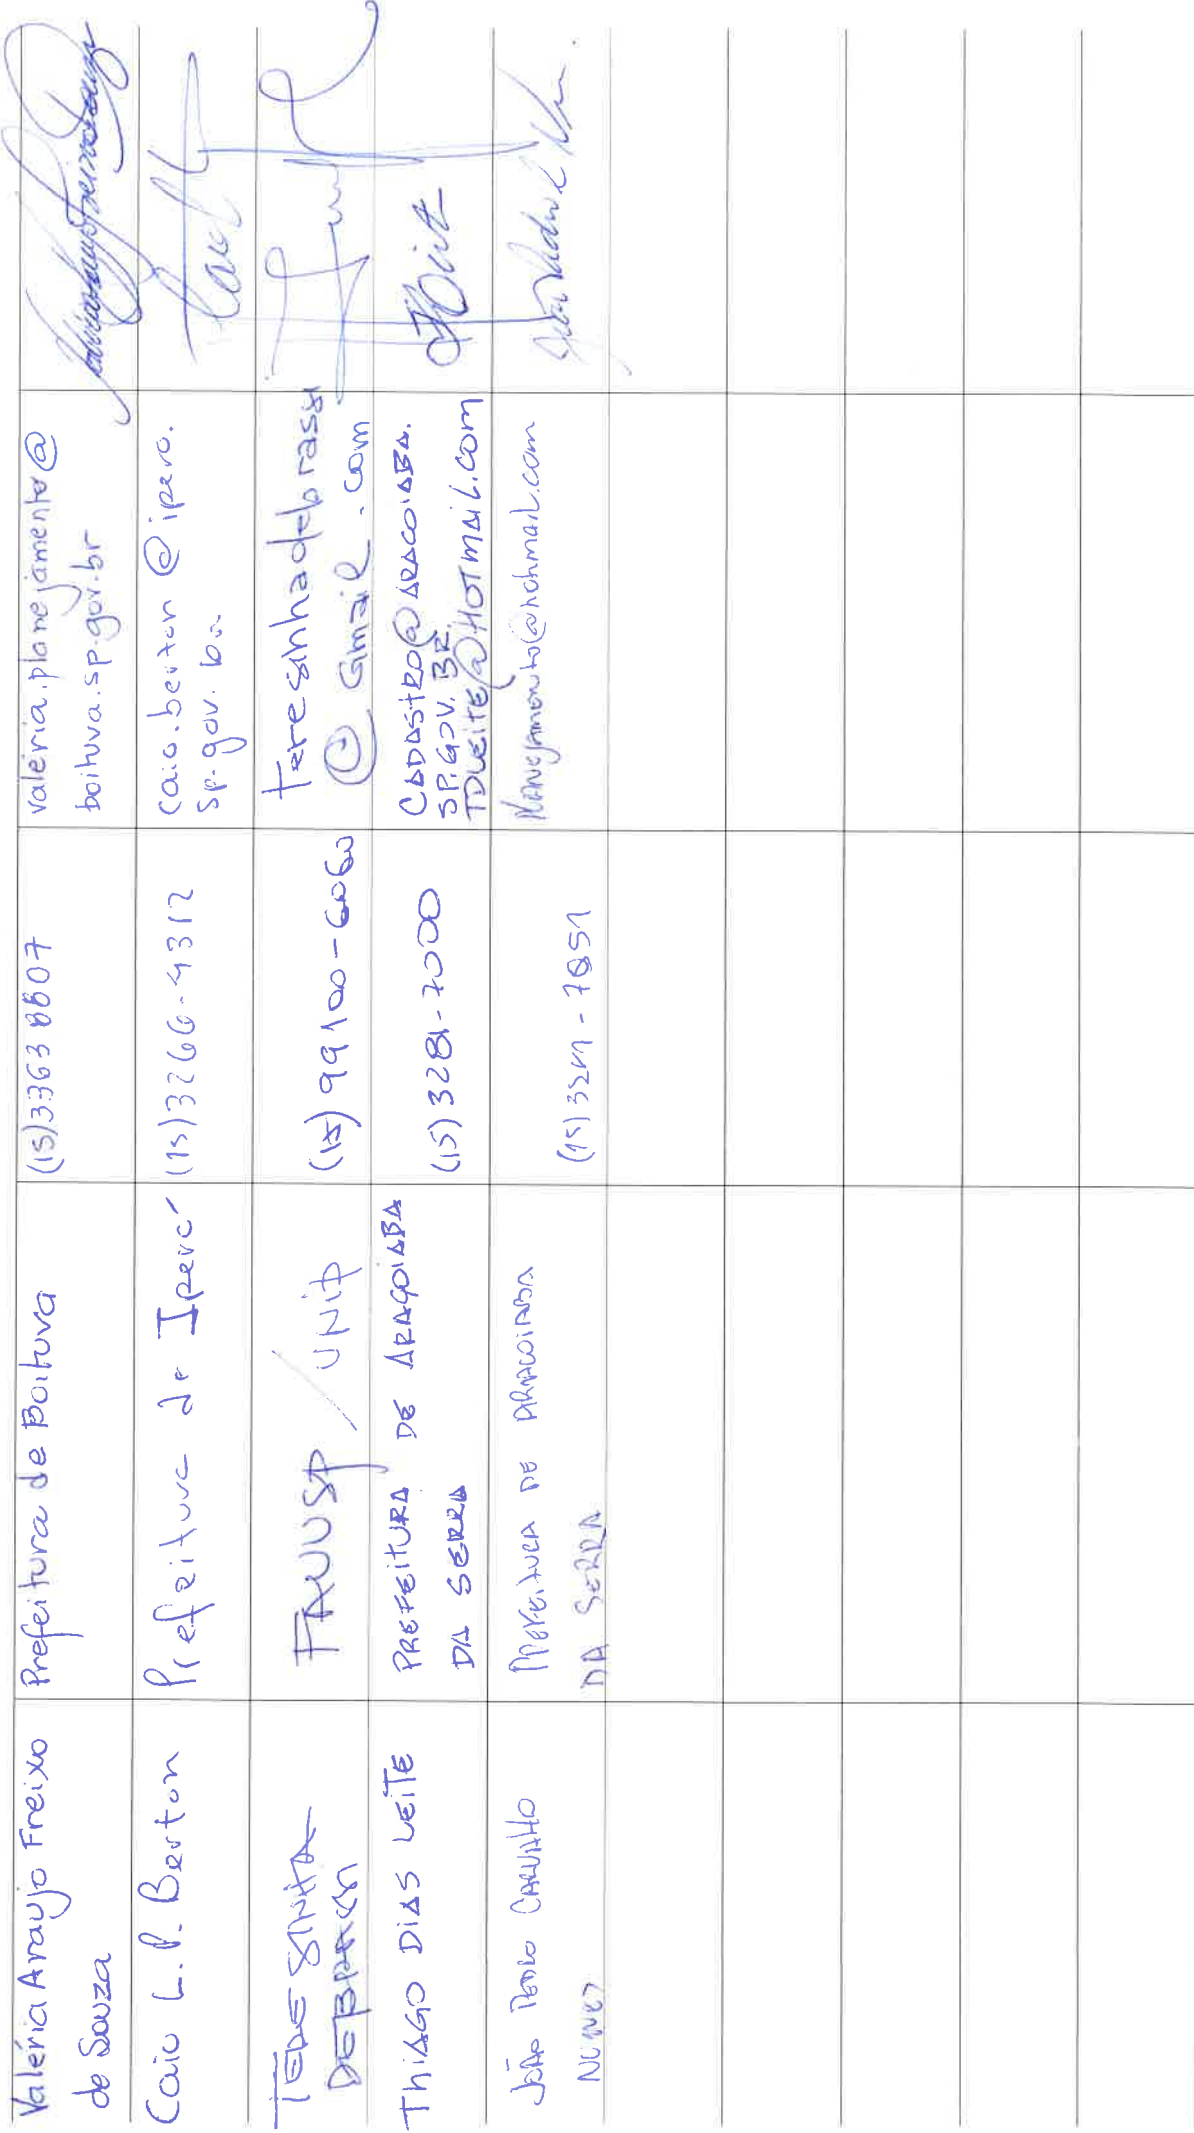 Valéria Araujo Freixo
de Souza
Prefeitura de Boituva
(15)3363 8807
valeria.planejamento@
boituva.sp.gov.br
Caio L.P. Berton
Prefeitura de Iperó
(15)3266-4312
caio.berton@ipero.
sp.gov.br
TERESINHA
DEBRASSI
FAUUSP / UNIP
(15) 99100-6060
teresinhadebrassi
@gmail.com
THIAGO DIAS LEITE
PREFEITURA DE ARAÇOIABA
DA SERRA
(15)3281-7000
CADASTRO@ARACOIABA.
SP.GOV.BR
TDLEITE@HOTMAIL.COM
JOÃO PEDRO CARVALHO
NUNES
PREFEITURA DE ARAÇOIABA
DA SERRA
(15)3281-7051